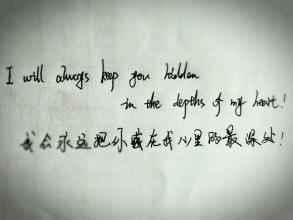 I will always keep you hidden
in the depths of my heart!
我会永远把你藏在我心里的最深处!